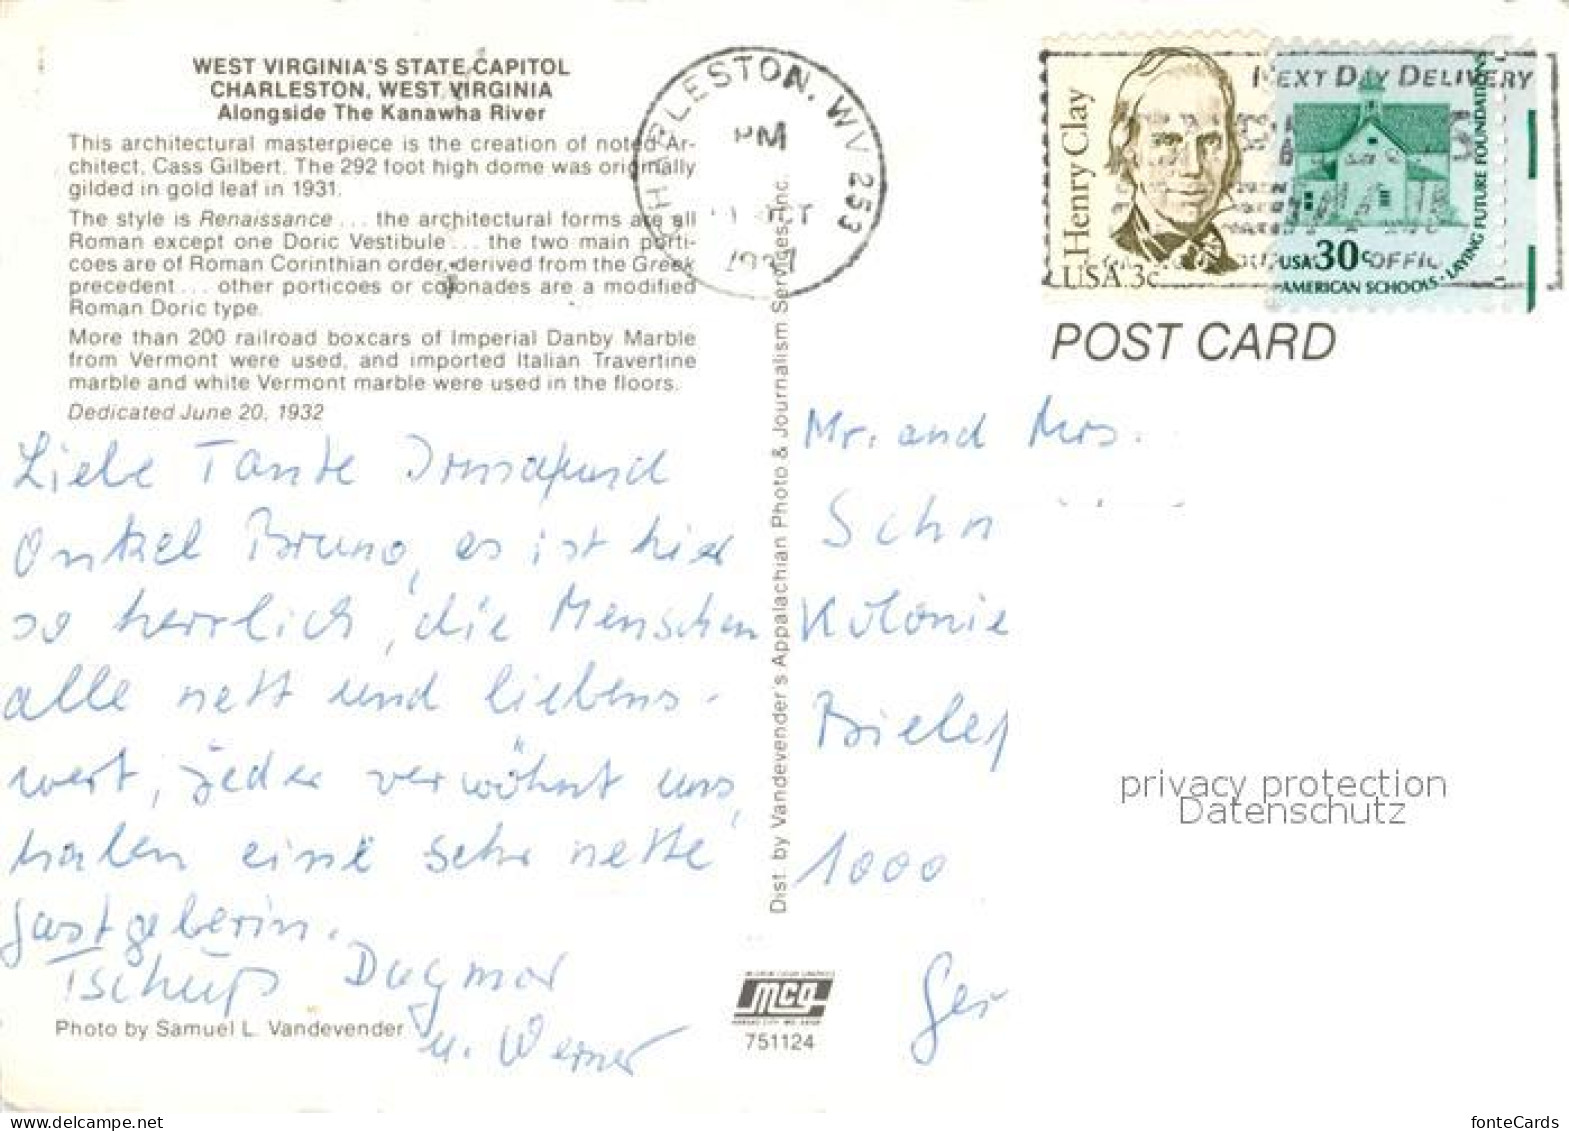 WEST VIRGINIA'S STATE CAPITOL
CHARLESTON, WEST VIRGINIA
Alongside The Kanawha River
This architectural masterpiece is the creation of noted Ar-
chitect, Cass Gilbert. The 292 foot high dome was originally
gilded in gold leaf in 1931.
The style is Renaissance ... the architectural forms are all
Roman except one Doric Vestibule ... the two main porti-
coes are of Roman Corinthian order, derived from the Greek
precedent ... other porticoes or colonades are a modified
Roman Doric type.
More than 200 railroad boxcars of Imperial Danby Marble
from Vermont were used, and imported Italian Travertine
marble and white Vermont marble were used in the floors.
Dedicated June 20, 1932
Liebe Tante Irma und
Onkel Bruno, es ist hier
so herrlich, die Menschen
alle nett und liebens-
wert, jeder verwöhnt uns,
haben eine sehr nette
Gastgeberin.
Tschüß Dagmar
u. Werner
Photo by Samuel L. Vandevender
Dist. by Vandevender's Appalachian Photo & Journalism Services, Inc.
mcg
751124
RLESTON, WV 253
PM
OCT
NEXT DAY DELIVERY
Henry Clay
USA 3c
USA 30c
AMERICAN SCHOOLS · LAYING FUTURE FOUNDATIONS
POST CARD
Mr. and Mrs.
Schn
Kolonie
Bielef
1000
Ger
privacy protection
Datenschutz
© the-best-of.net
fonteCards